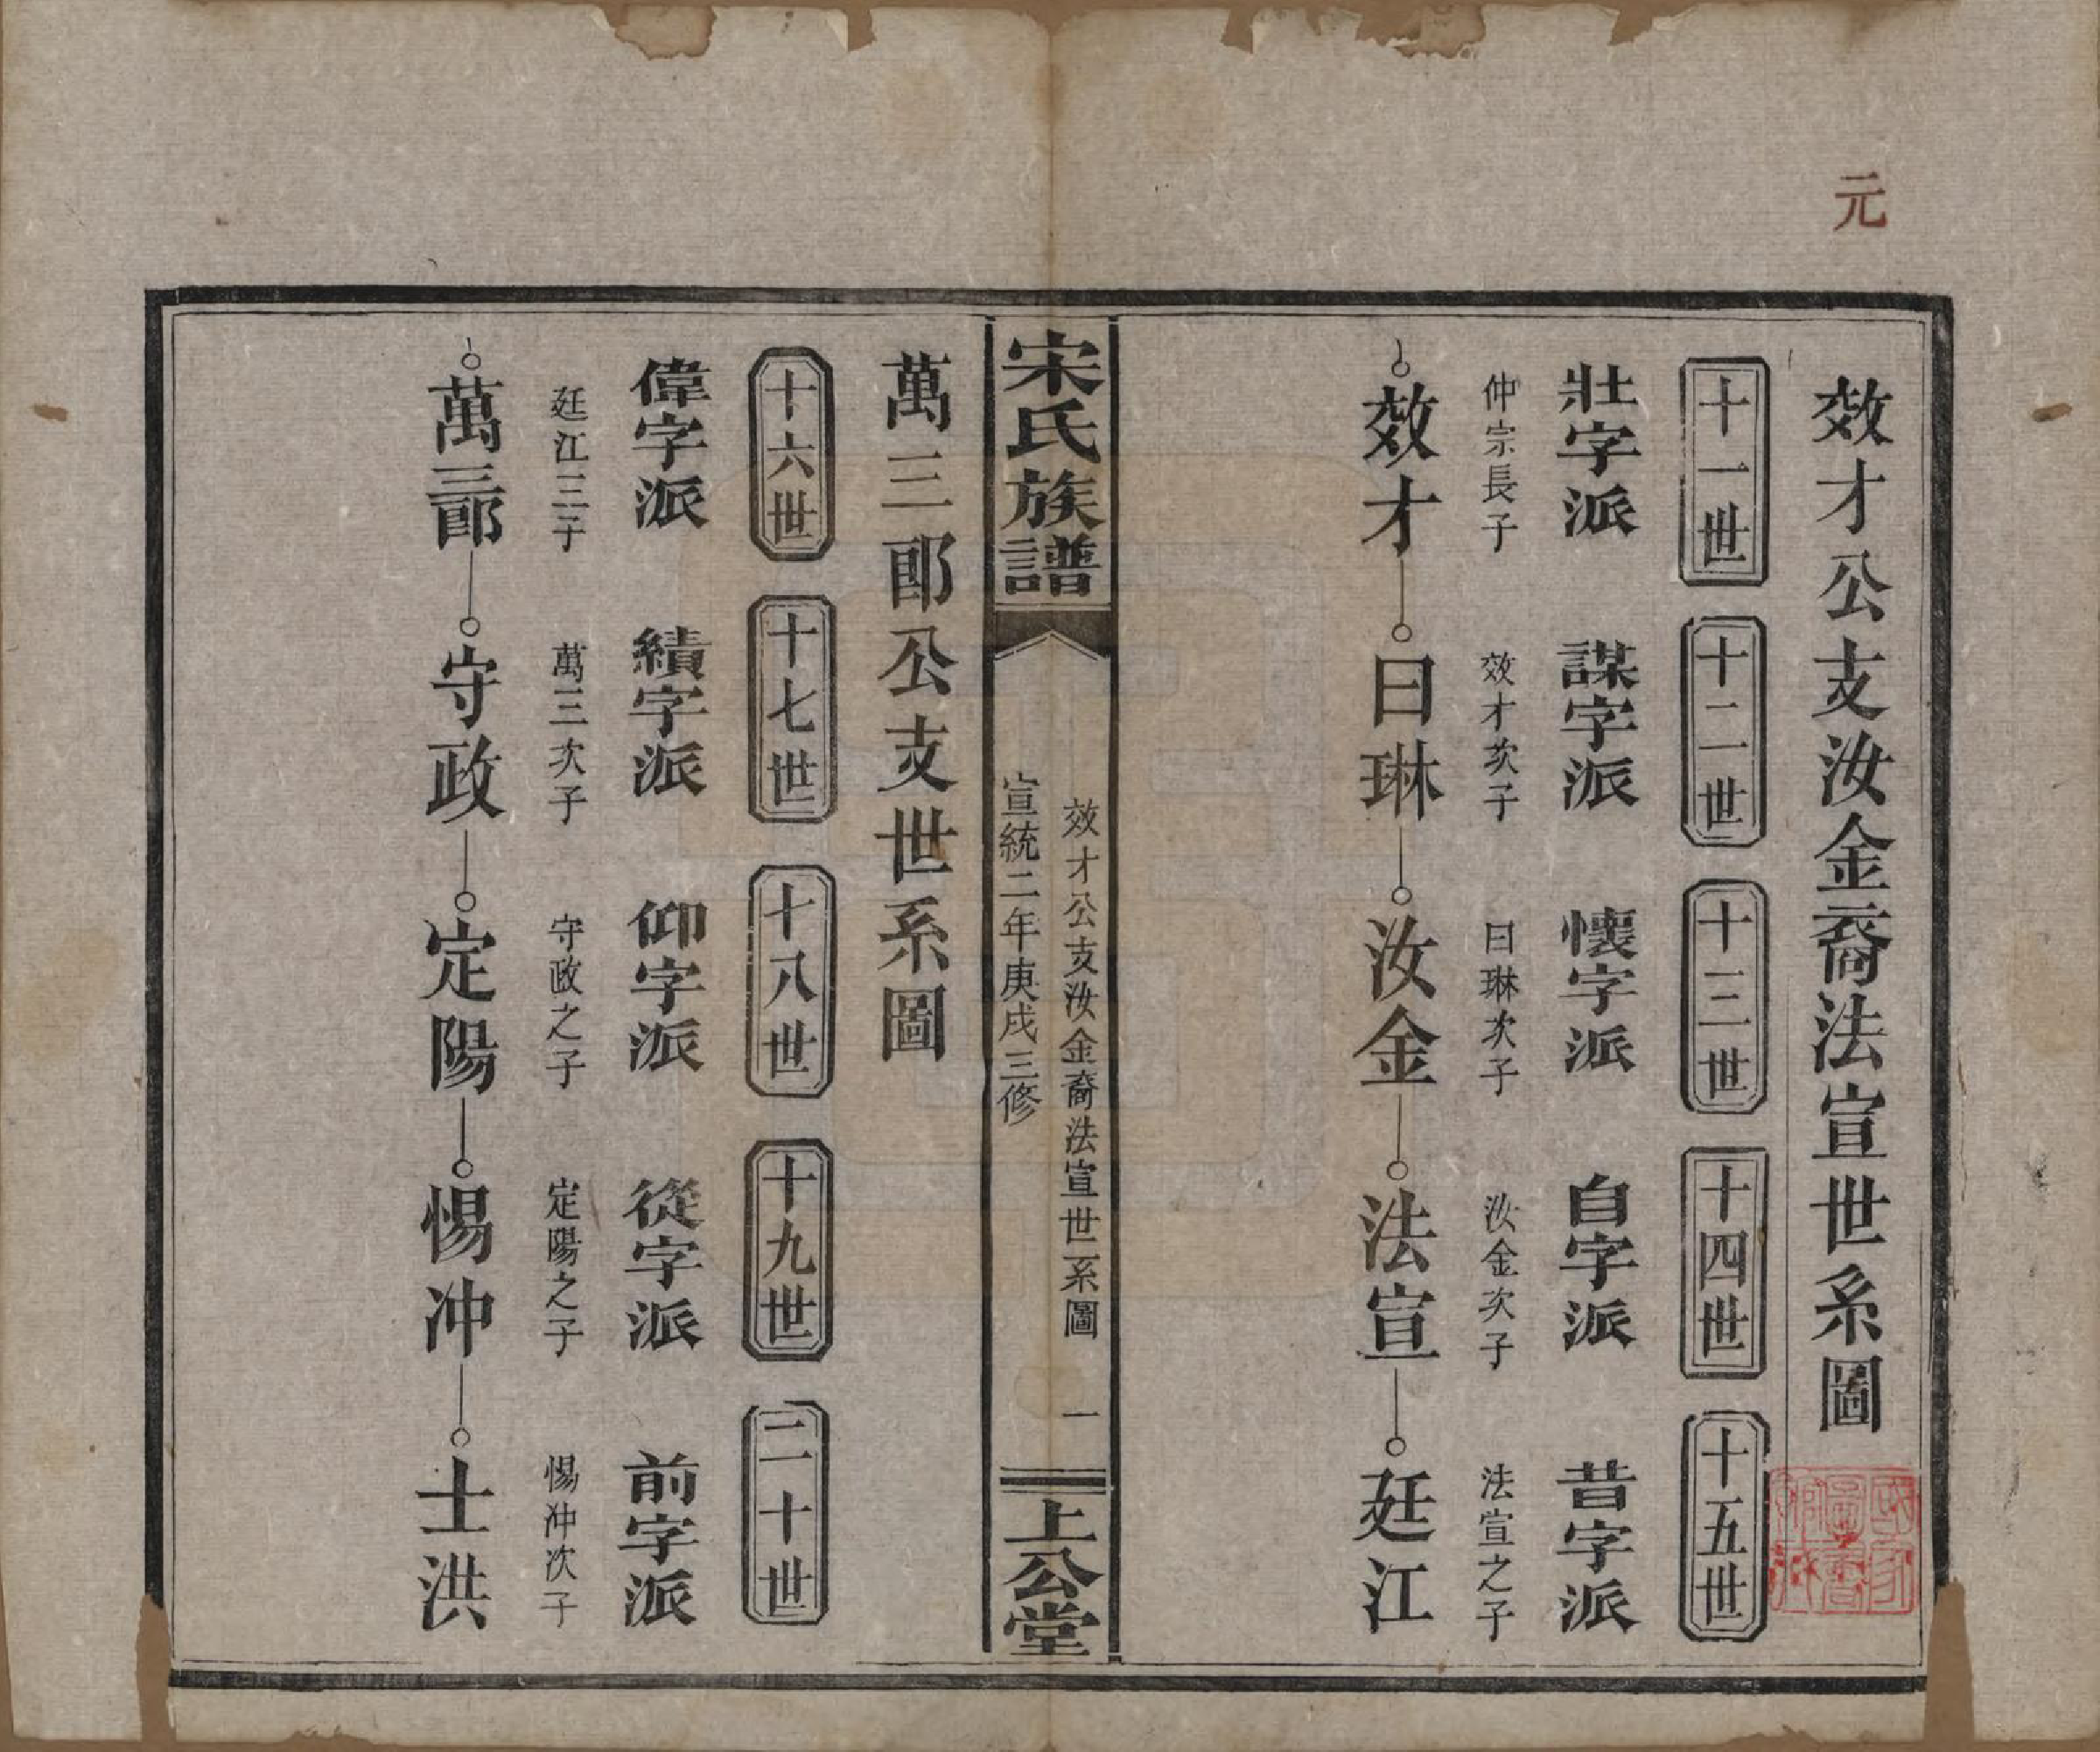 元
效才公支汝金裔法宣世系圖
十一世
十二世
十三世
十四世
十五世
壯字派
謀字派
懷字派
自字派
昔字派
仲宗長子
效才次子
曰琳次子
汝金次子
法宣之子
效才
曰琳
汝金
法宣
廷江
宋氏族譜
效才公支汝金裔法宣世系圖
一
宣統二年庚戌三修
上公堂
萬三郎公支世系圖
十六世
十七世
十八世
十九世
二十世
偉字派
績字派
仰字派
從字派
前字派
廷江三子
萬三次子
守政之子
定陽之子
惕冲次子
萬三郎
守政
定陽
惕冲
士洪